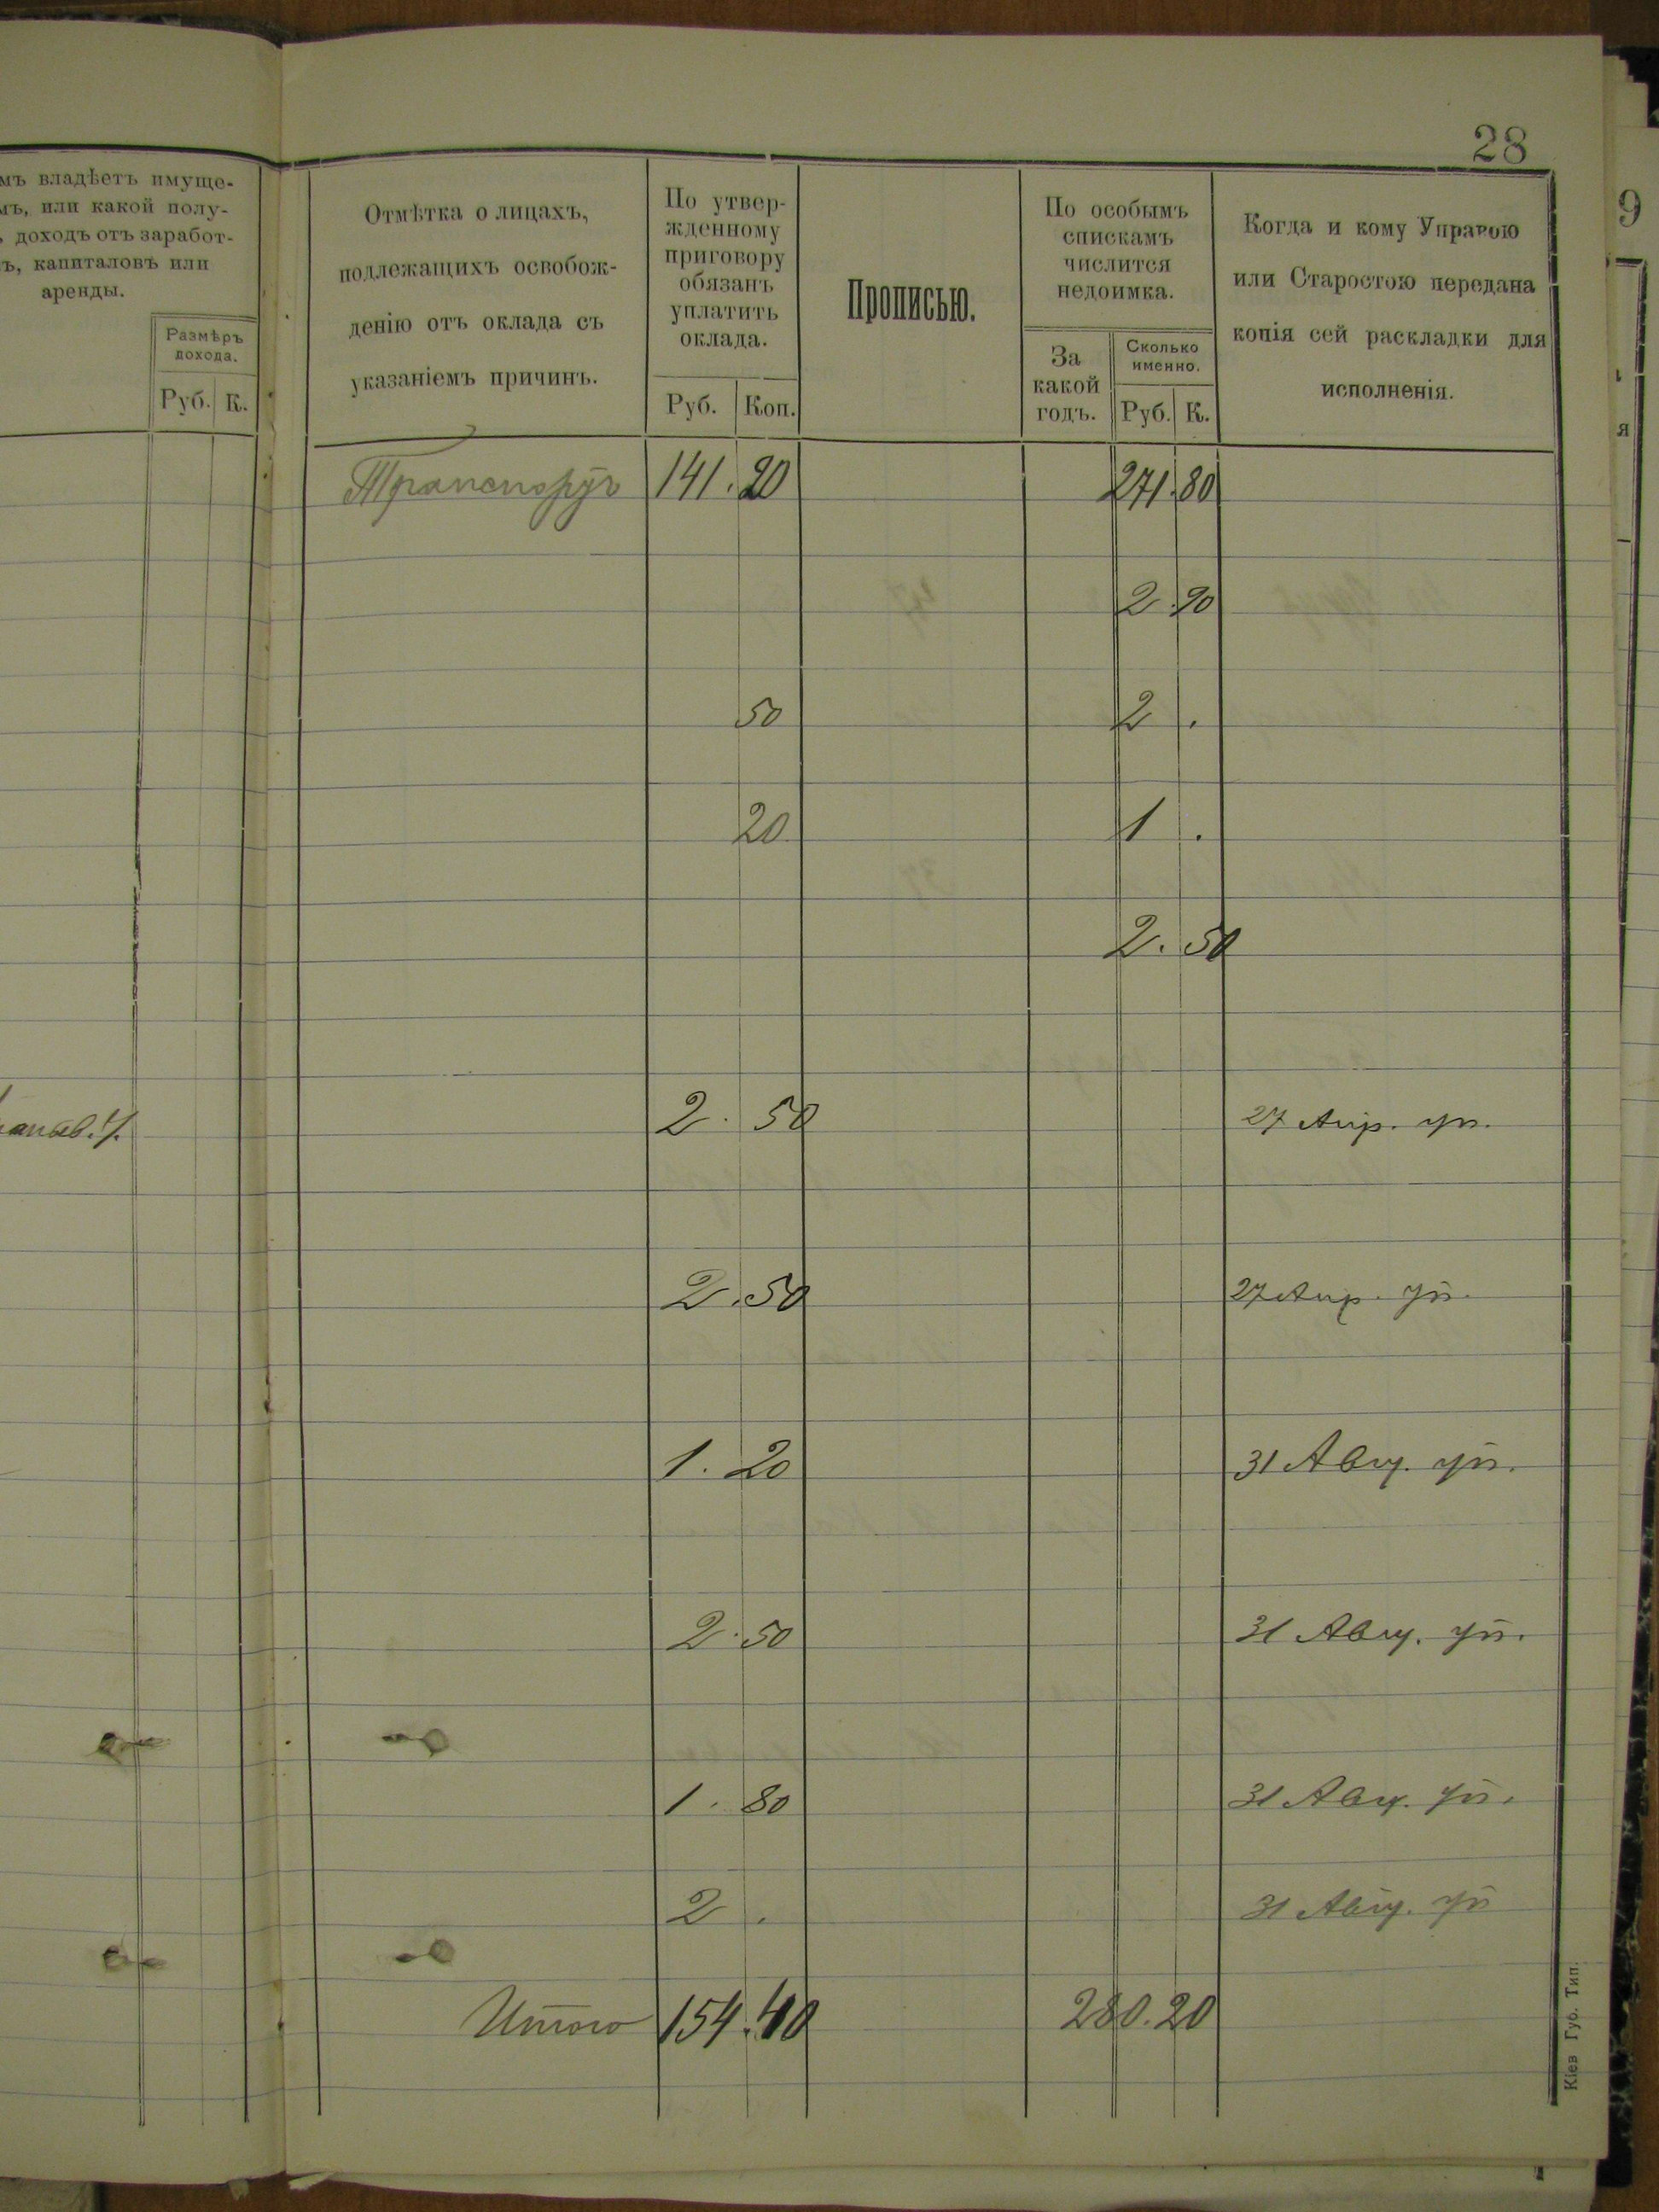 28
9
мъ владѣетъ имуще-
мъ, или какой полу-
, доходъ отъ заработ-
ъ, капиталовъ или
аренды.
Размѣръ
дохода.
Руб. К.
Отмѣтка о лицахъ,
подлежащихъ освобож-
денію отъ оклада съ
указаніемъ причинъ.
По утвер-
жденному
приговору
обязанъ
уплатить
оклада.
Руб. Коп.
Прописью.
По особымъ
спискамъ
числится
недоимка.
За
какой
годъ.
Сколько
именно.
Руб. К.
Когда и кому Управою
или Старостою передана
копія сей раскладки для
исполненія.
я
Транспортъ 141. 20 271. 80
2. 90
50 2 .
20 1 .
2. 50
2. 50 27 Апр. уп.
2. 50 27 Апр. уп.
1. 20 31 Авг. уп.
2. 50 31 Авг. уп.
1. 80 31 Авг. уп.
2 . 31 Авг. уп
Итого 154. 40 280. 20
Кіев Губ. Тип.